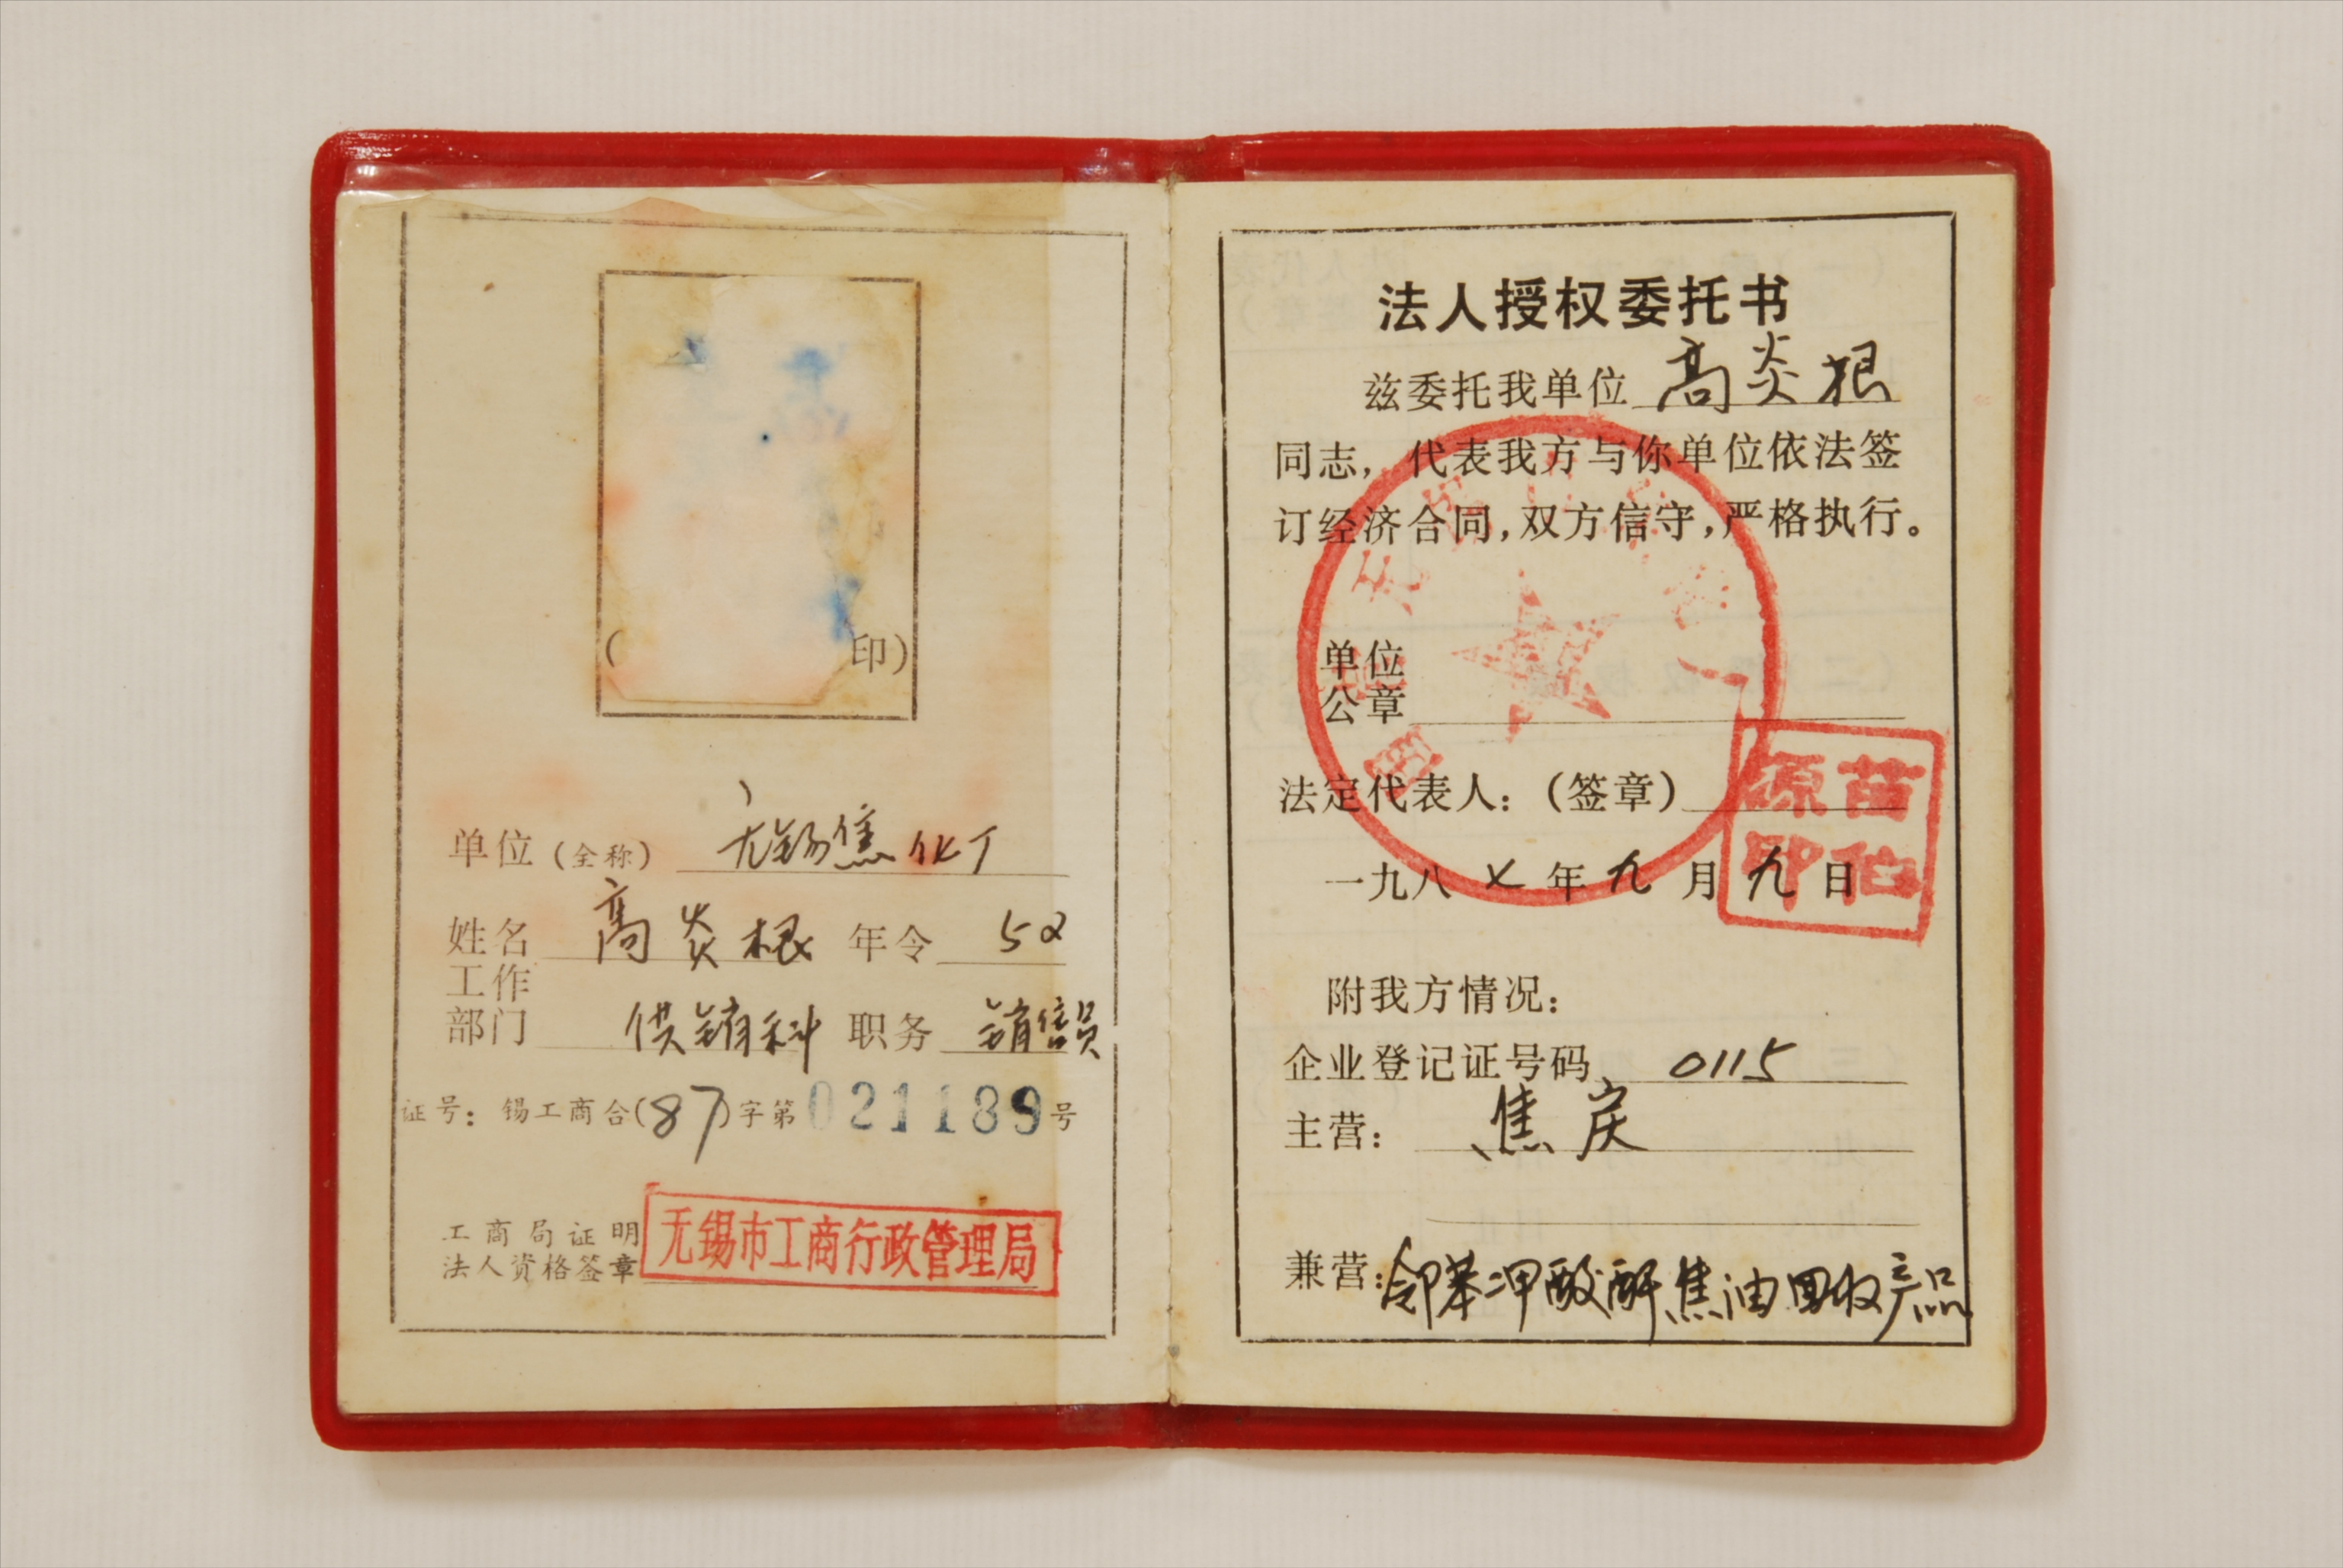 印)
单位(全称) 无锡焦化厂
姓名 高炎根 年令 52
工作
部门 供销科 职务 销售员
证号：锡工商合(87)字第021189号
工商局证明
法人资格签章 无锡市工商行政管理局
法人授权委托书
兹委托我单位 高炎根
同志，代表我方与你单位依法签
订经济合同，双方信守，严格执行。
单位
公章
法定代表人：(签章)
苗伯源印
一九八七年九月九日
附我方情况：
企业登记证号码 0115
主营： 焦炭
兼营：邻苯二甲酸酐焦油回收产品